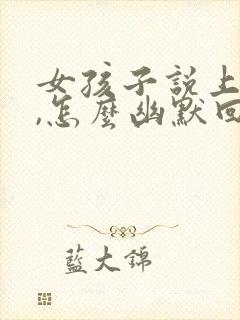 女孩子說上
,怎麼幽默回
藍大錦